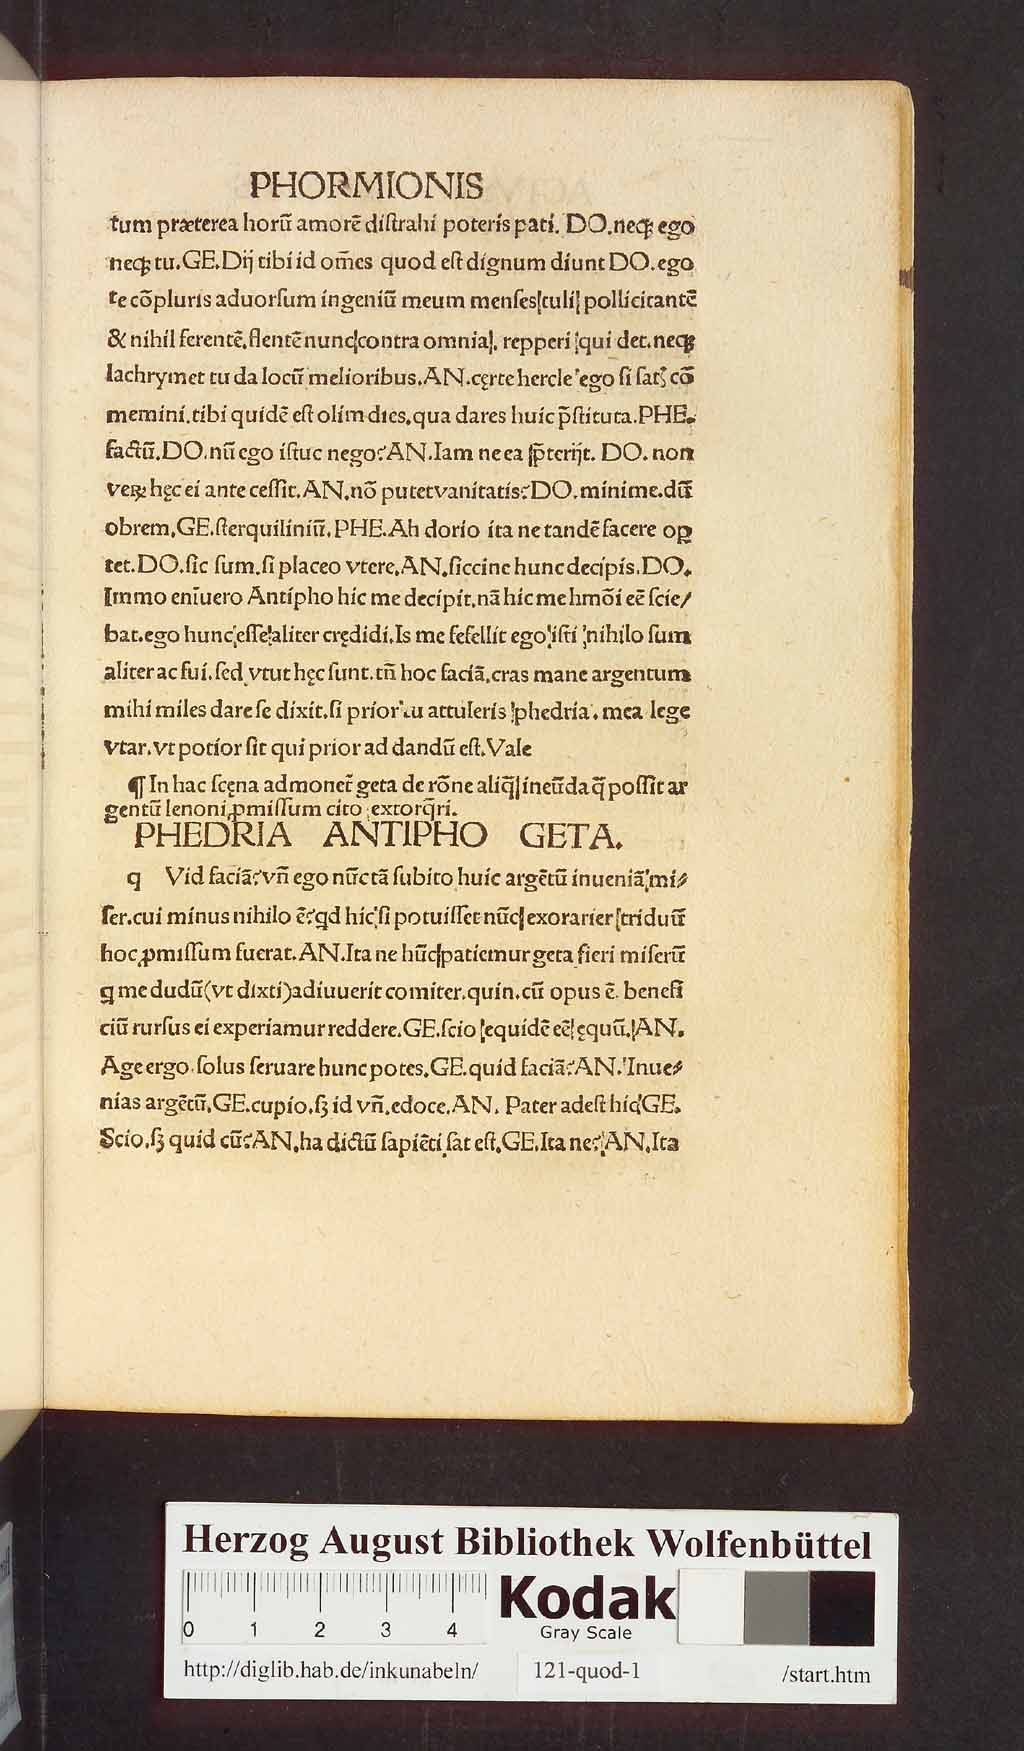 PHORMIONIS
tum præterea horũ amorẽ diſtrahi poteris pati. DO. neqꝫ ego
neqꝫ tu. GE. Dij tibi id om̃es quod eſt dignum diunt DO. ego
te cõpluris aduorſum ingeniũ meum menſes tuli pollicitantẽ
& nihil ferentẽ, flentẽ nunc contra omnia. repperi qui det. neqꝫ
lachrymet tu da locũ melioribus. AN. cęrte hercle ego ſi ſatꝭ cõ
memini. tibi quidẽ eſt olim dies, qua dares huic p̃ſtituta. PHE.
factũ. DO. nũ ego iſtuc nego? AN. Iam ne ea p̃terijt. DO. non
veꝝ hęc ei ante ceſſit. AN. nõ putet vanitatis? DO. minime. dũ
obrem. GE. ſterquiliniũ. PHE. Ah dorio ita ne tandẽ facere oꝑ
tet. DO. ſic ſum. ſi placeo vtere. AN. ſiccine hunc decipis. DO.
Immo enĩuero Antipho hic me decipit. nã hic me hmõi eẽ ſcie/
bat. ego hunc eſſe aliter crędidi. Is me fefellit ego iſti nihilo ſum
aliter ac fui. ſed vtut hęc ſunt. tñ hoc faciã. cras mane argentum
mihi miles dare ſe dixit. ſi prior tu attuleris phedria. mea lege
vtar. vt potior ſit qui prior ad dandũ eſt. Vale
¶ In hac ſcęna admonet̃ geta de rõne aliq̃ ineũda q̃ poſſit ar
gentũ lenoni ꝓmiſſum cito extorq̃ri.
PHEDRIA ANTIPHO GETA.
q Vid faciã? vñ ego nũc tã ſubito huic argẽtũ inueniã mi/
ſer. cui minus nihilo ẽ? qd hic ſi potuiſſet nũc exorarier triduũ
hoc ꝓmiſſum fuerat. AN. Ita ne hũc patiemur geta fieri miſerũ
q me dudũ (vt dixti) adiuuerit comiter. quin. cũ opus ẽ. benefi
ciũ rurſus ei experiamur reddere. GE. ſcio equidẽ eẽ ęquũ. AN.
Age ergo. ſolus ſeruare hunc potes. GE. quid faciã? AN. Inue/
nias argẽtũ. GE. cupio. ſꝫ id vñ. edoce. AN. Pater adeſt hic GE.
Scio. ſꝫ quid cũ? AN. ha dictũ ſapiẽti ſat eſt. GE. Ita ne? AN. Ita
Herzog August Bibliothek Wolfenbüttel
0 1 2 3 4
Kodak
Gray Scale
http://diglib.hab.de/inkunabeln/ 121-quod-1 /start.htm